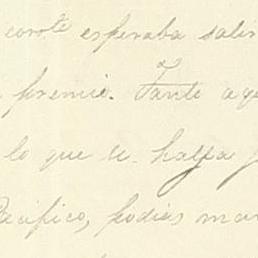 corr.te esperaba salir
premio. Tanto a
lo que te halfa
Pacifico, podias man